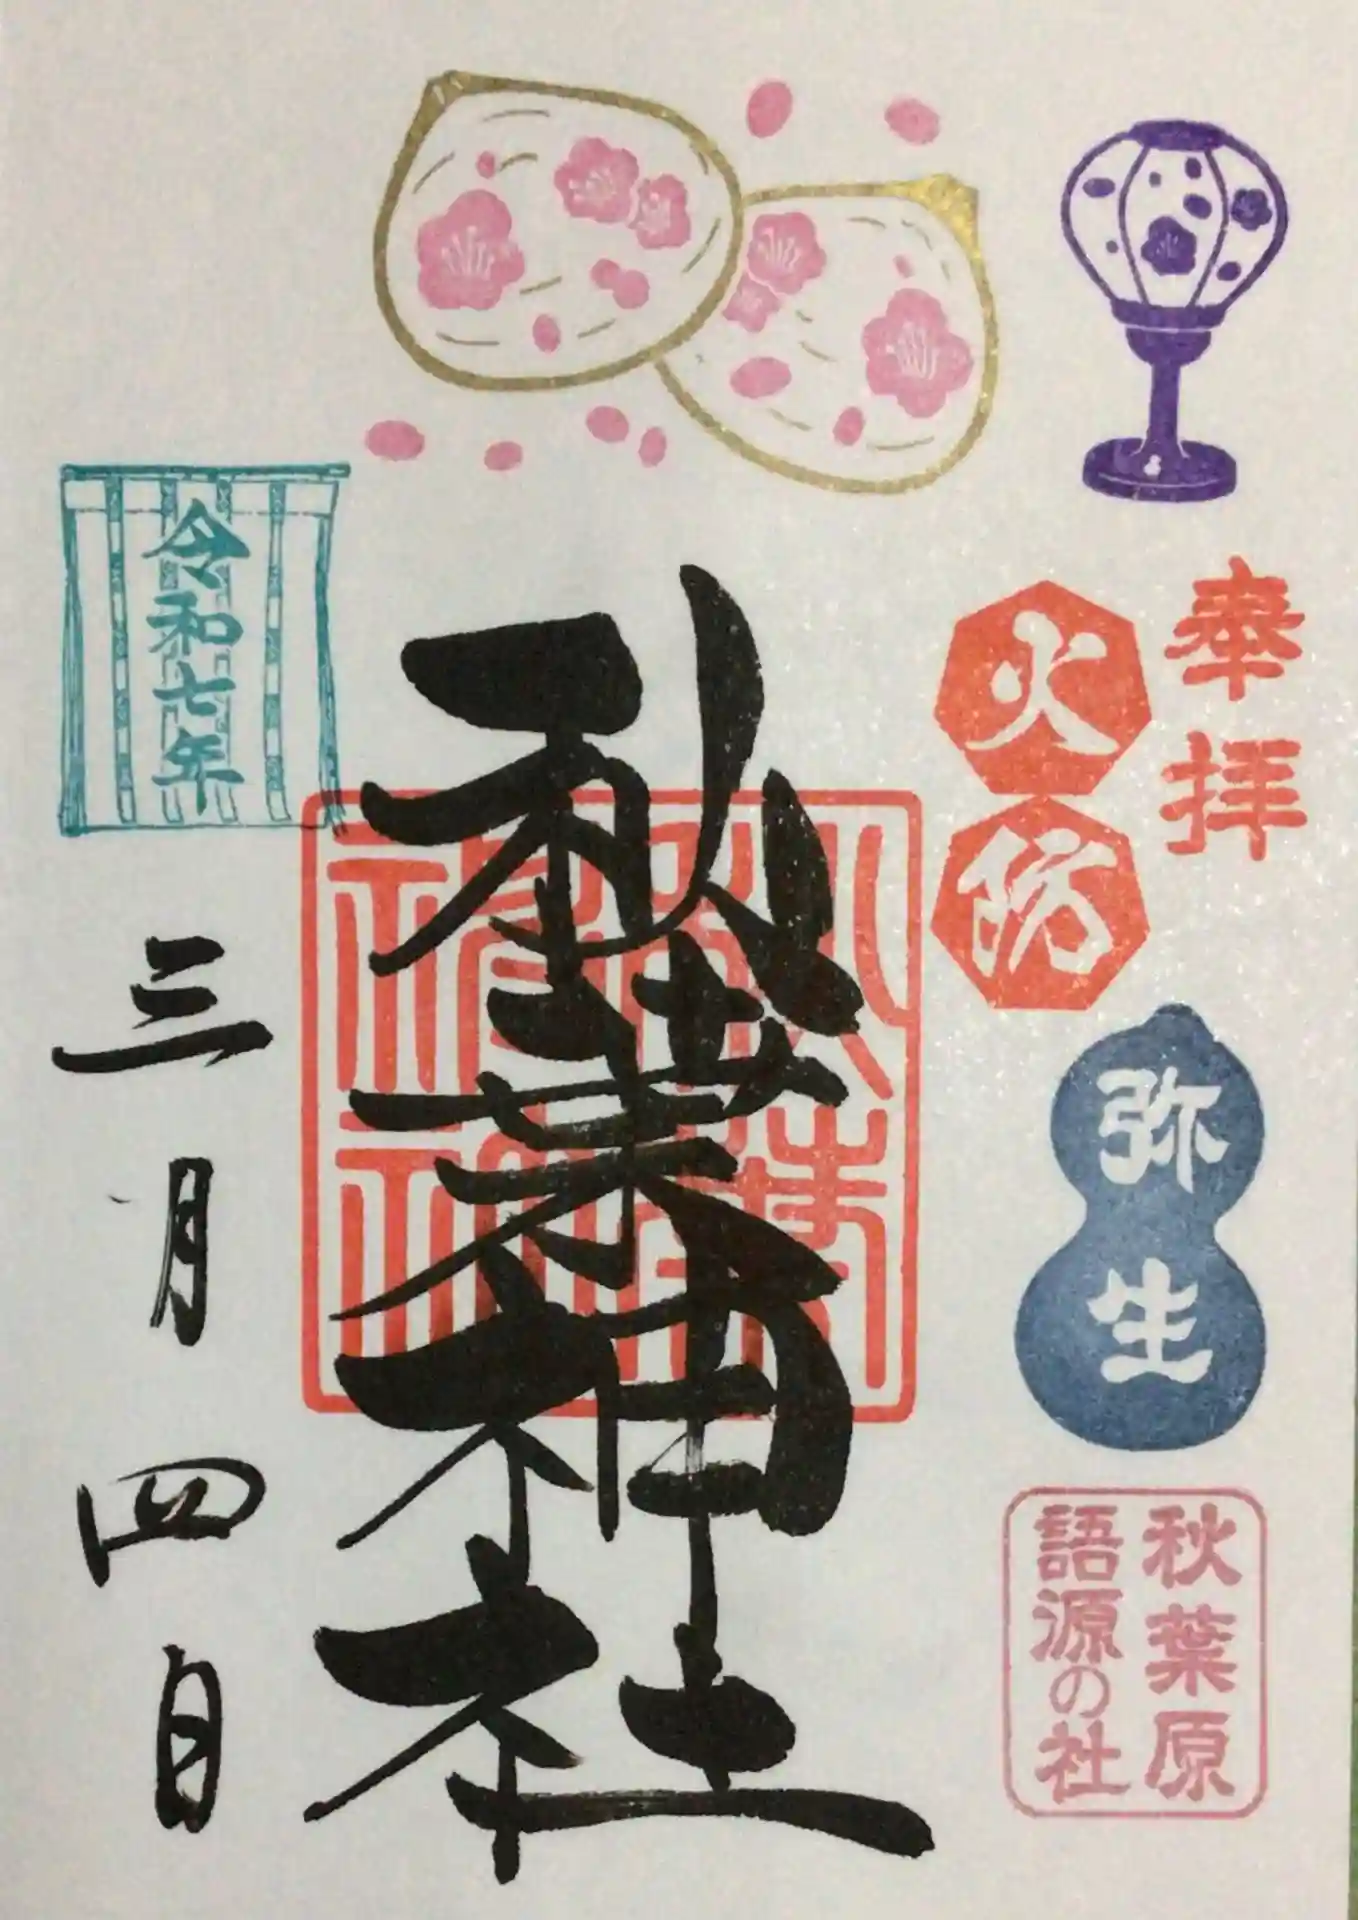 奉拝
火防
弥生
秋葉原
語源の社
秋葉神社
秋葉
神社
令和七年
三月四日